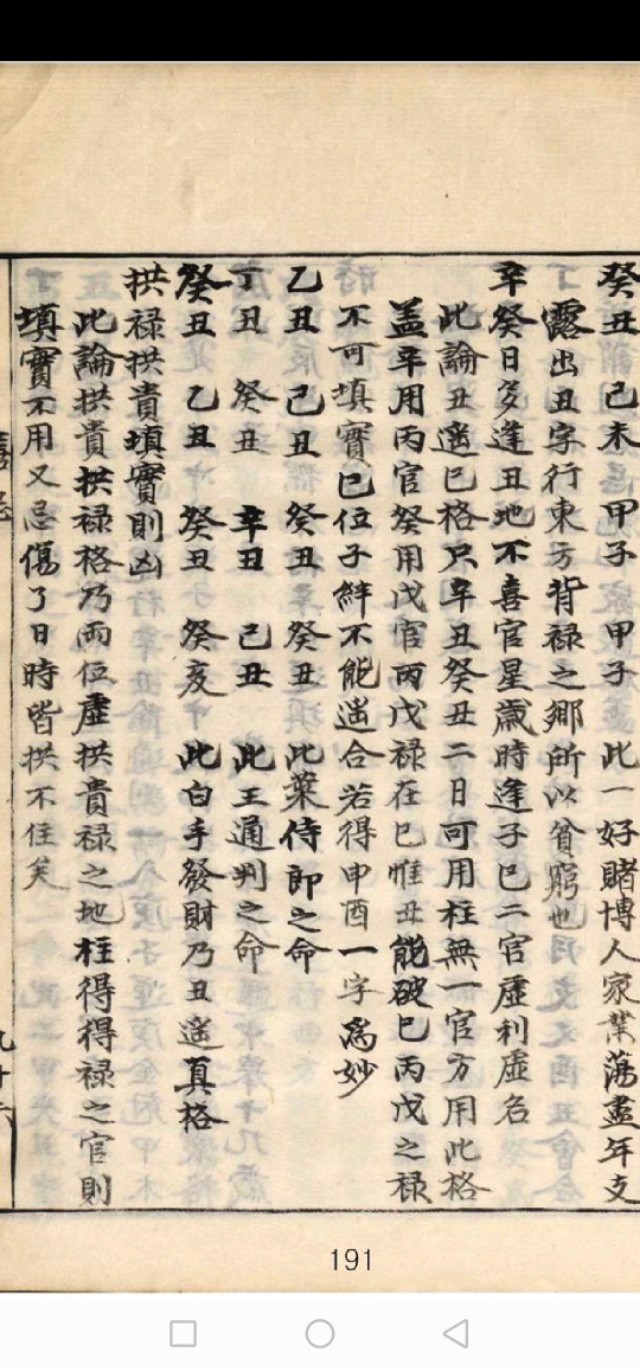 癸丑 己未 甲子 甲子 此一好賭博人家業蕩盡年支
露出丑字行東方背禄之鄉所以貧窮也
辛癸日多逢丑地不喜官星歲時逢子巳二官虛利虛名
此論丑遥巳格只辛丑癸丑二日可用柱無一官方用此格
盖辛用丙官癸用戊官丙戊禄在巳惟丑能破巳丙戊之禄
不可填實巳位子絆不能遥合若得申酉一字為妙
乙丑 己丑 癸丑 癸丑 此葉侍郎之命
丁丑 癸丑 辛丑 己丑 此王通判之命
癸丑 乙丑 癸丑 癸亥 此白手發財乃丑遥真格
拱禄拱貴填實則凶
此論拱貴拱禄格乃兩位虛拱貴禄之地柱得得禄之官則
填實不用又忌傷了日時皆拱不住矣
九十六
191